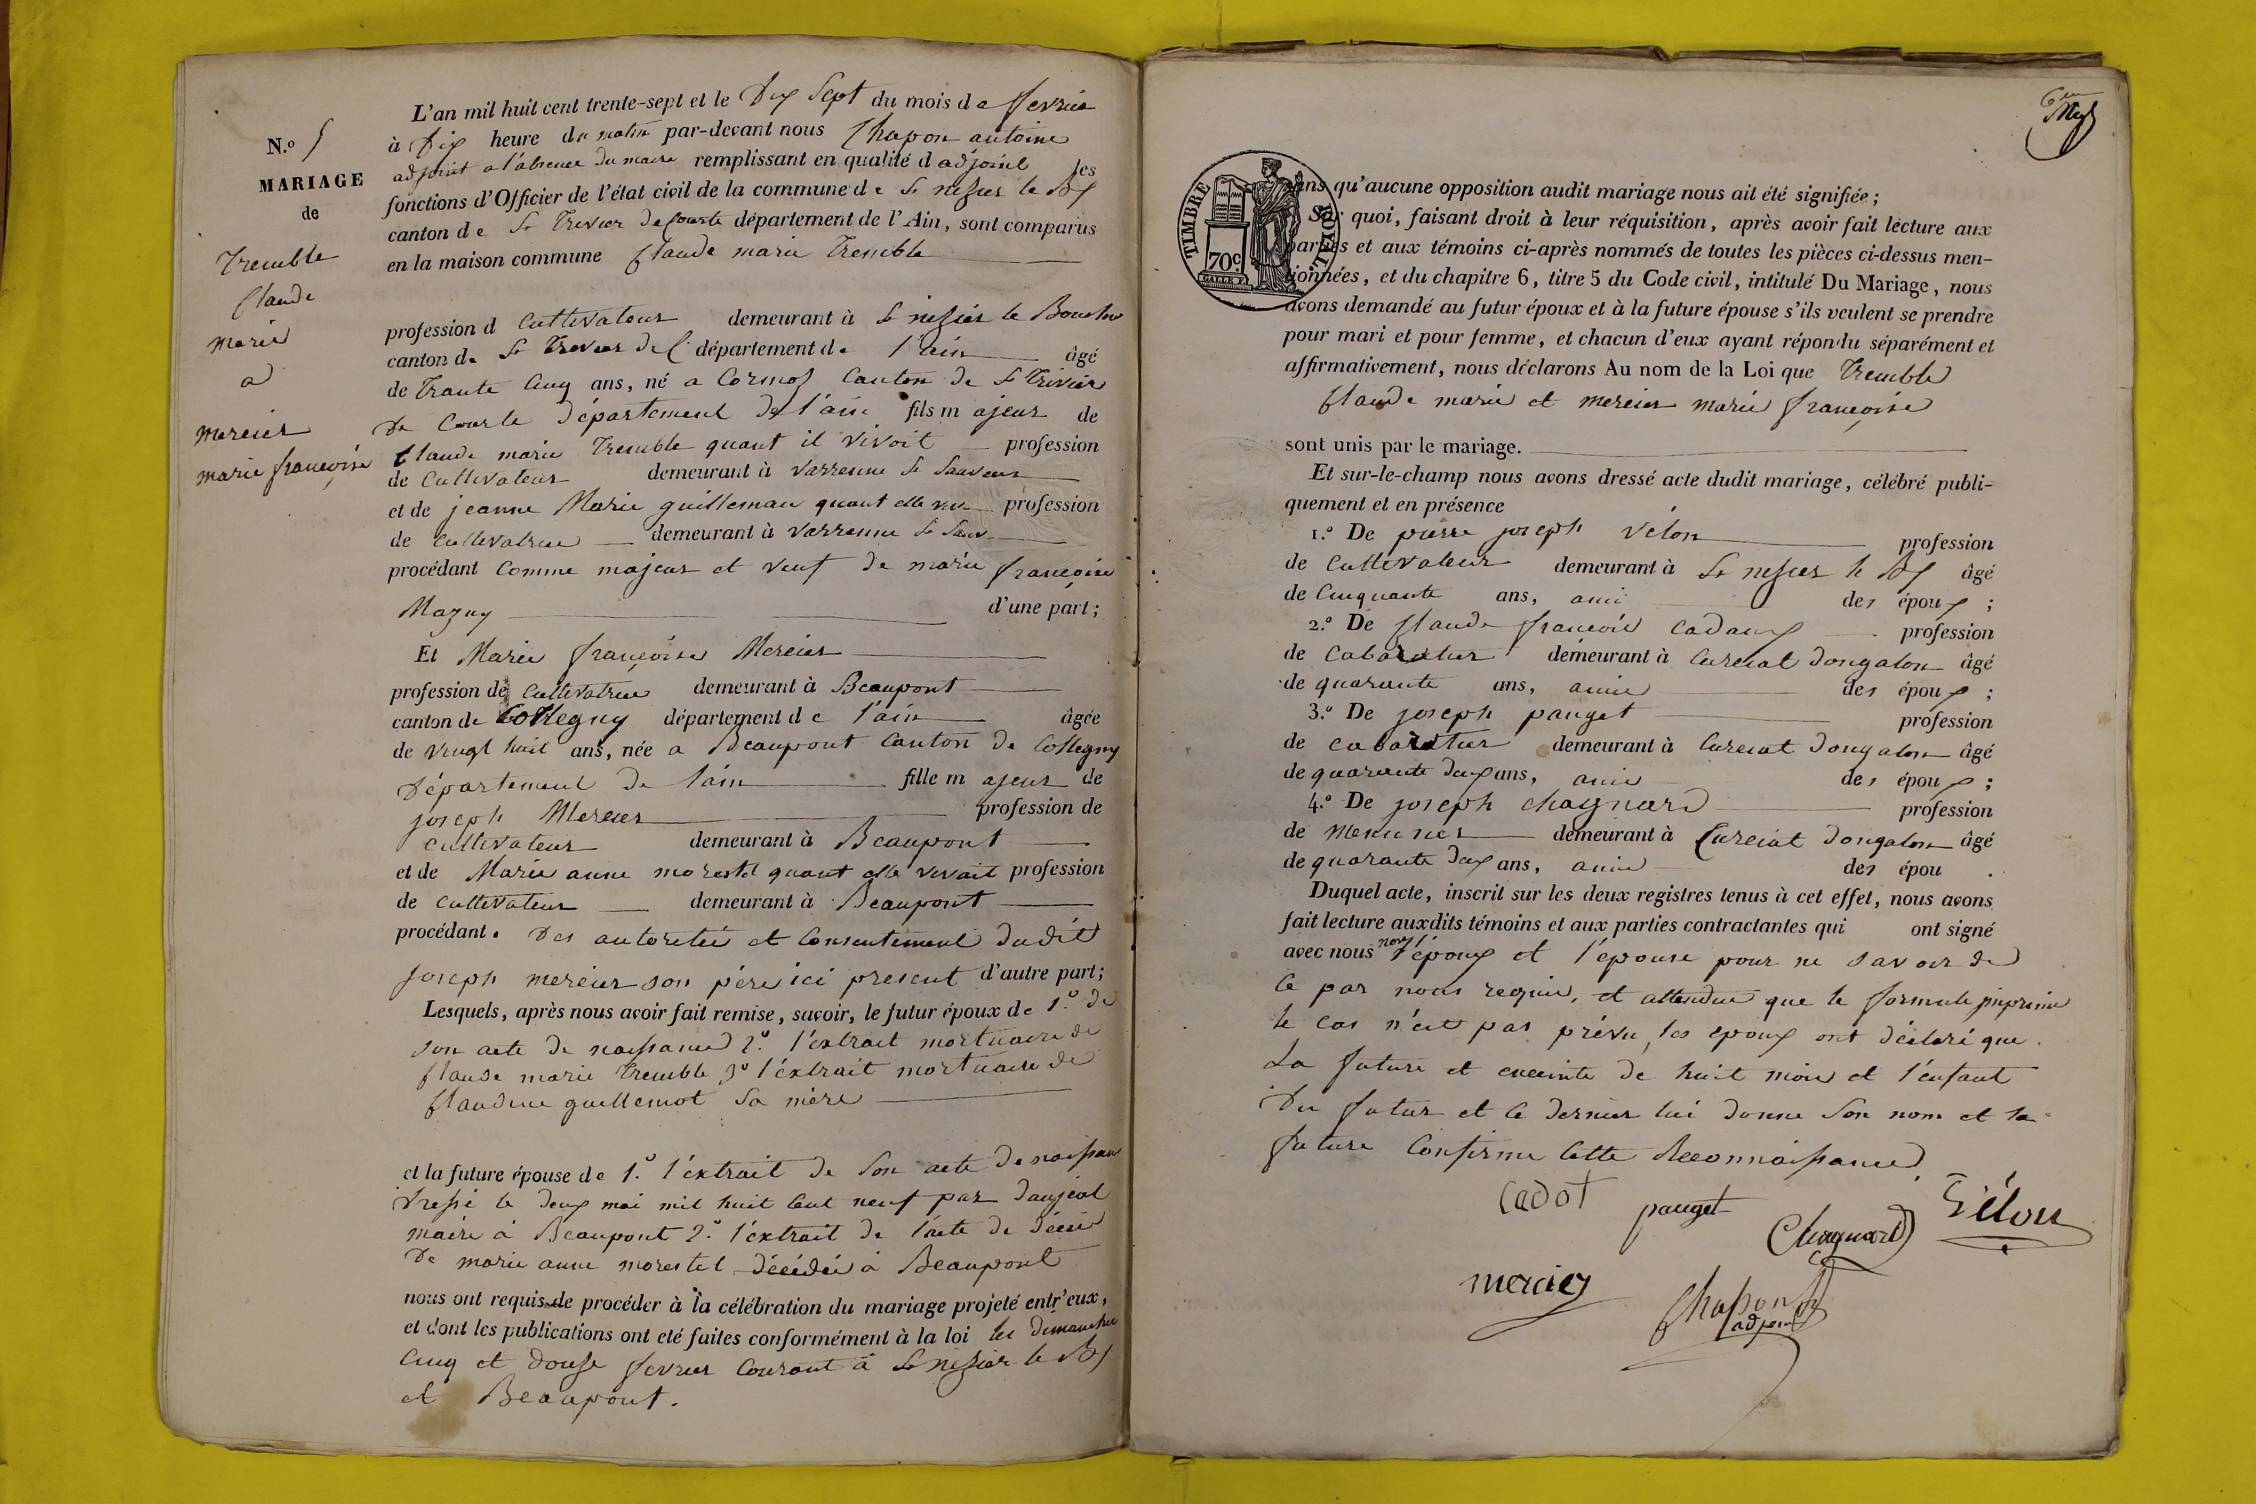 N.º 5
MARIAGE
de
Tremble
Claude
marie
a
mercier
marie françoise
L'an mil huit cent trente-sept et le Dix Sept du mois de fevrier
à Dix heure du matin par-devant nous Chapon antoine
adjoint a l'absence du maire remplissant en qualité d adjoint les
fonctions d'Officier de l'état civil de la commune de St nizier le Bt
canton de St Trivier de Courte département de l'Ain, sont comparus
en la maison commune Claude marie Tremble
profession d Cultivateur demeurant à St nizier le Bouchu
canton de St Trivier de C département de l'ain âgé
de Trante Cinq ans, né a Cormoz Canton de St Trivier
De Courte département de l'ain fils majeur de
Claude marie Tremble quant il vivoit profession
de Cultivateur demeurant à Varrenne St Sauveur
et de jeanne Marie guilleman quant elle viv profession
de cultivatrice demeurant à Varrenne St Sauv
procédant Comme majeur et veuf de marie françoise
Mazuy d'une part;
Et Marie françoise Mercier
profession de cultivatrice demeurant à Beaupont
canton de Collegny département de l'ain âgée
de vingt huit ans, née a Beaupont Canton de Collegny
Département de l'ain fille majeur de
joseph Mercier profession de
cultivateur demeurant à Beaupont
et de Marie anne morestel quant elle vivait profession
de cultivateur demeurant à Beaupont
procédant. Des autoritée et Consentement dudit
joseph mercier son père ici present d'autre part;
Lesquels, après nous avoir fait remise, savoir, le futur époux de 1.º de
son acte de naissance 2.º l'extrait mortuaire de
Claude marie Tremble 3º l'extrait mortuaire de
Claudine guillemot sa mère
et la future épouse de 1.º l'extrait de Son acte de naissan
Dressé le deux mai mil huit Cent neuf par daujeat
maire à Beaupont 2.º l'extrait de l'acte de décès
De marie anne morestel décédée à Beaupont
nous ont requis de procéder à la célébration du mariage projeté entr'eux,
et dont les publications ont eté faites conformément à la loi les dimanches
Cinq et douze fevrier Courant à St nizier le Bt
et Beaupont.
TIMBRE ROYAL
70c
sans qu'aucune opposition audit mariage nous ait été signifiée;
Sur quoi, faisant droit à leur réquisition, après avoir fait lecture aux
parties et aux témoins ci-après nommés de toutes les pièces ci-dessus men-
tionnées, et du chapitre 6, titre 5 du Code civil, intitulé Du Mariage, nous
avons demandé au futur époux et à la future épouse s'ils veulent se prendre
pour mari et pour femme, et chacun d'eux ayant répondu séparément et
affirmativement, nous déclarons Au nom de la Loi que Tremble
Claude marie et mercier marie françoise
sont unis par le mariage.
Et sur-le-champ nous avons dressé acte dudit mariage, célébré publi-
quement et en présence
1.º De pierre joseph Vélon profession
de Cultivateur demeurant à St nizier le Bt âgé
de Cinquante ans, ami des époux;
2.º De Claude françois Cadaux profession
de Cabaratier demeurant à Curciat dongalon âgé
de quarante ans, amie des époux;
3.º De joseph pauget profession
de cabaratier demeurant à Curciat dongalon âgé
de quarante deux ans, amie des époux;
4.º De joseph chagnard profession
de Menunier demeurant à Curciat dongalon âgé
de quarante deux ans, amie des épou .
Duquel acte, inscrit sur les deux registres tenus à cet effet, nous avons
fait lecture auxdits témoins et aux parties contractantes qui ont signé
avec nous non l'époux et l'épouse pour ne savoir de
Ce par nous requie, et attendue que le formule jmprimé
le cas n'est pas prévu, les epoux ont déclaré que
La future et enceinte de huit mois et l'enfant
Du futur et Ce dernier lui donne Son nom et la
future Confirme Cette Reconnaissance
Cadot pauget Chagnard Vélon
mercier Chapon
adjoint